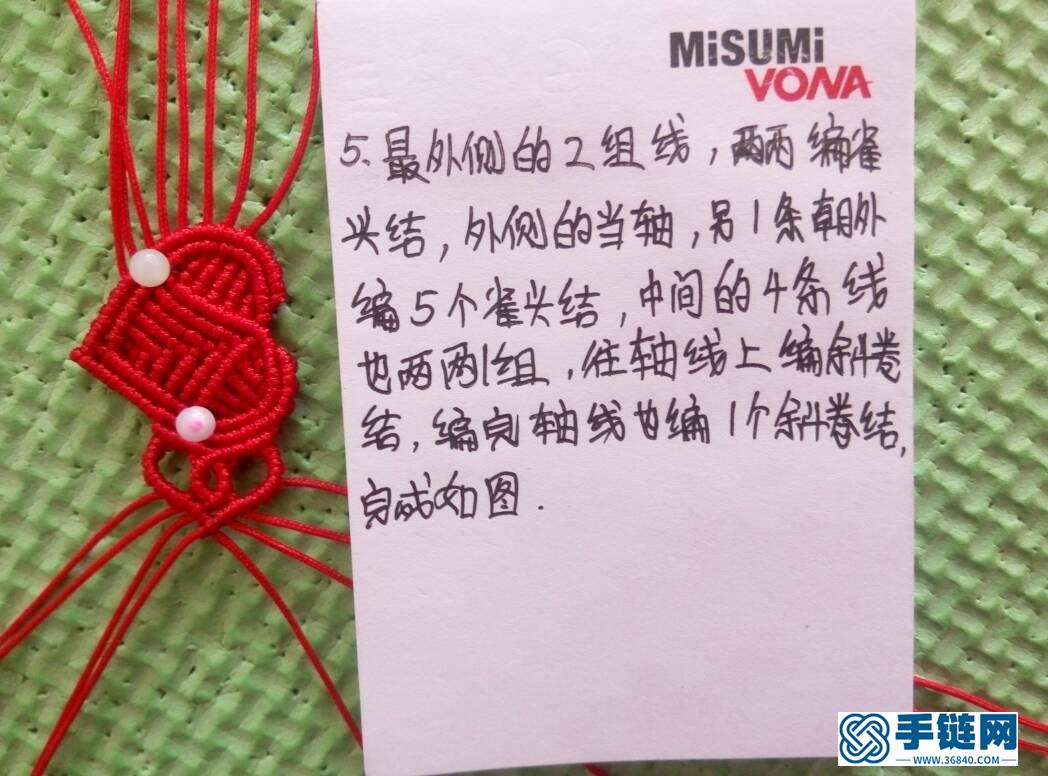 MiSUMi
VONA
5.最外侧的2组线，两两编雀
头结，外侧的当轴，另1条朝外
编5个雀头结，中间的4条线
也两两1组，往轴线上编斜卷
结，编完轴线也编1个斜卷结，
完成如图.
手链网
WWW.36840.COM